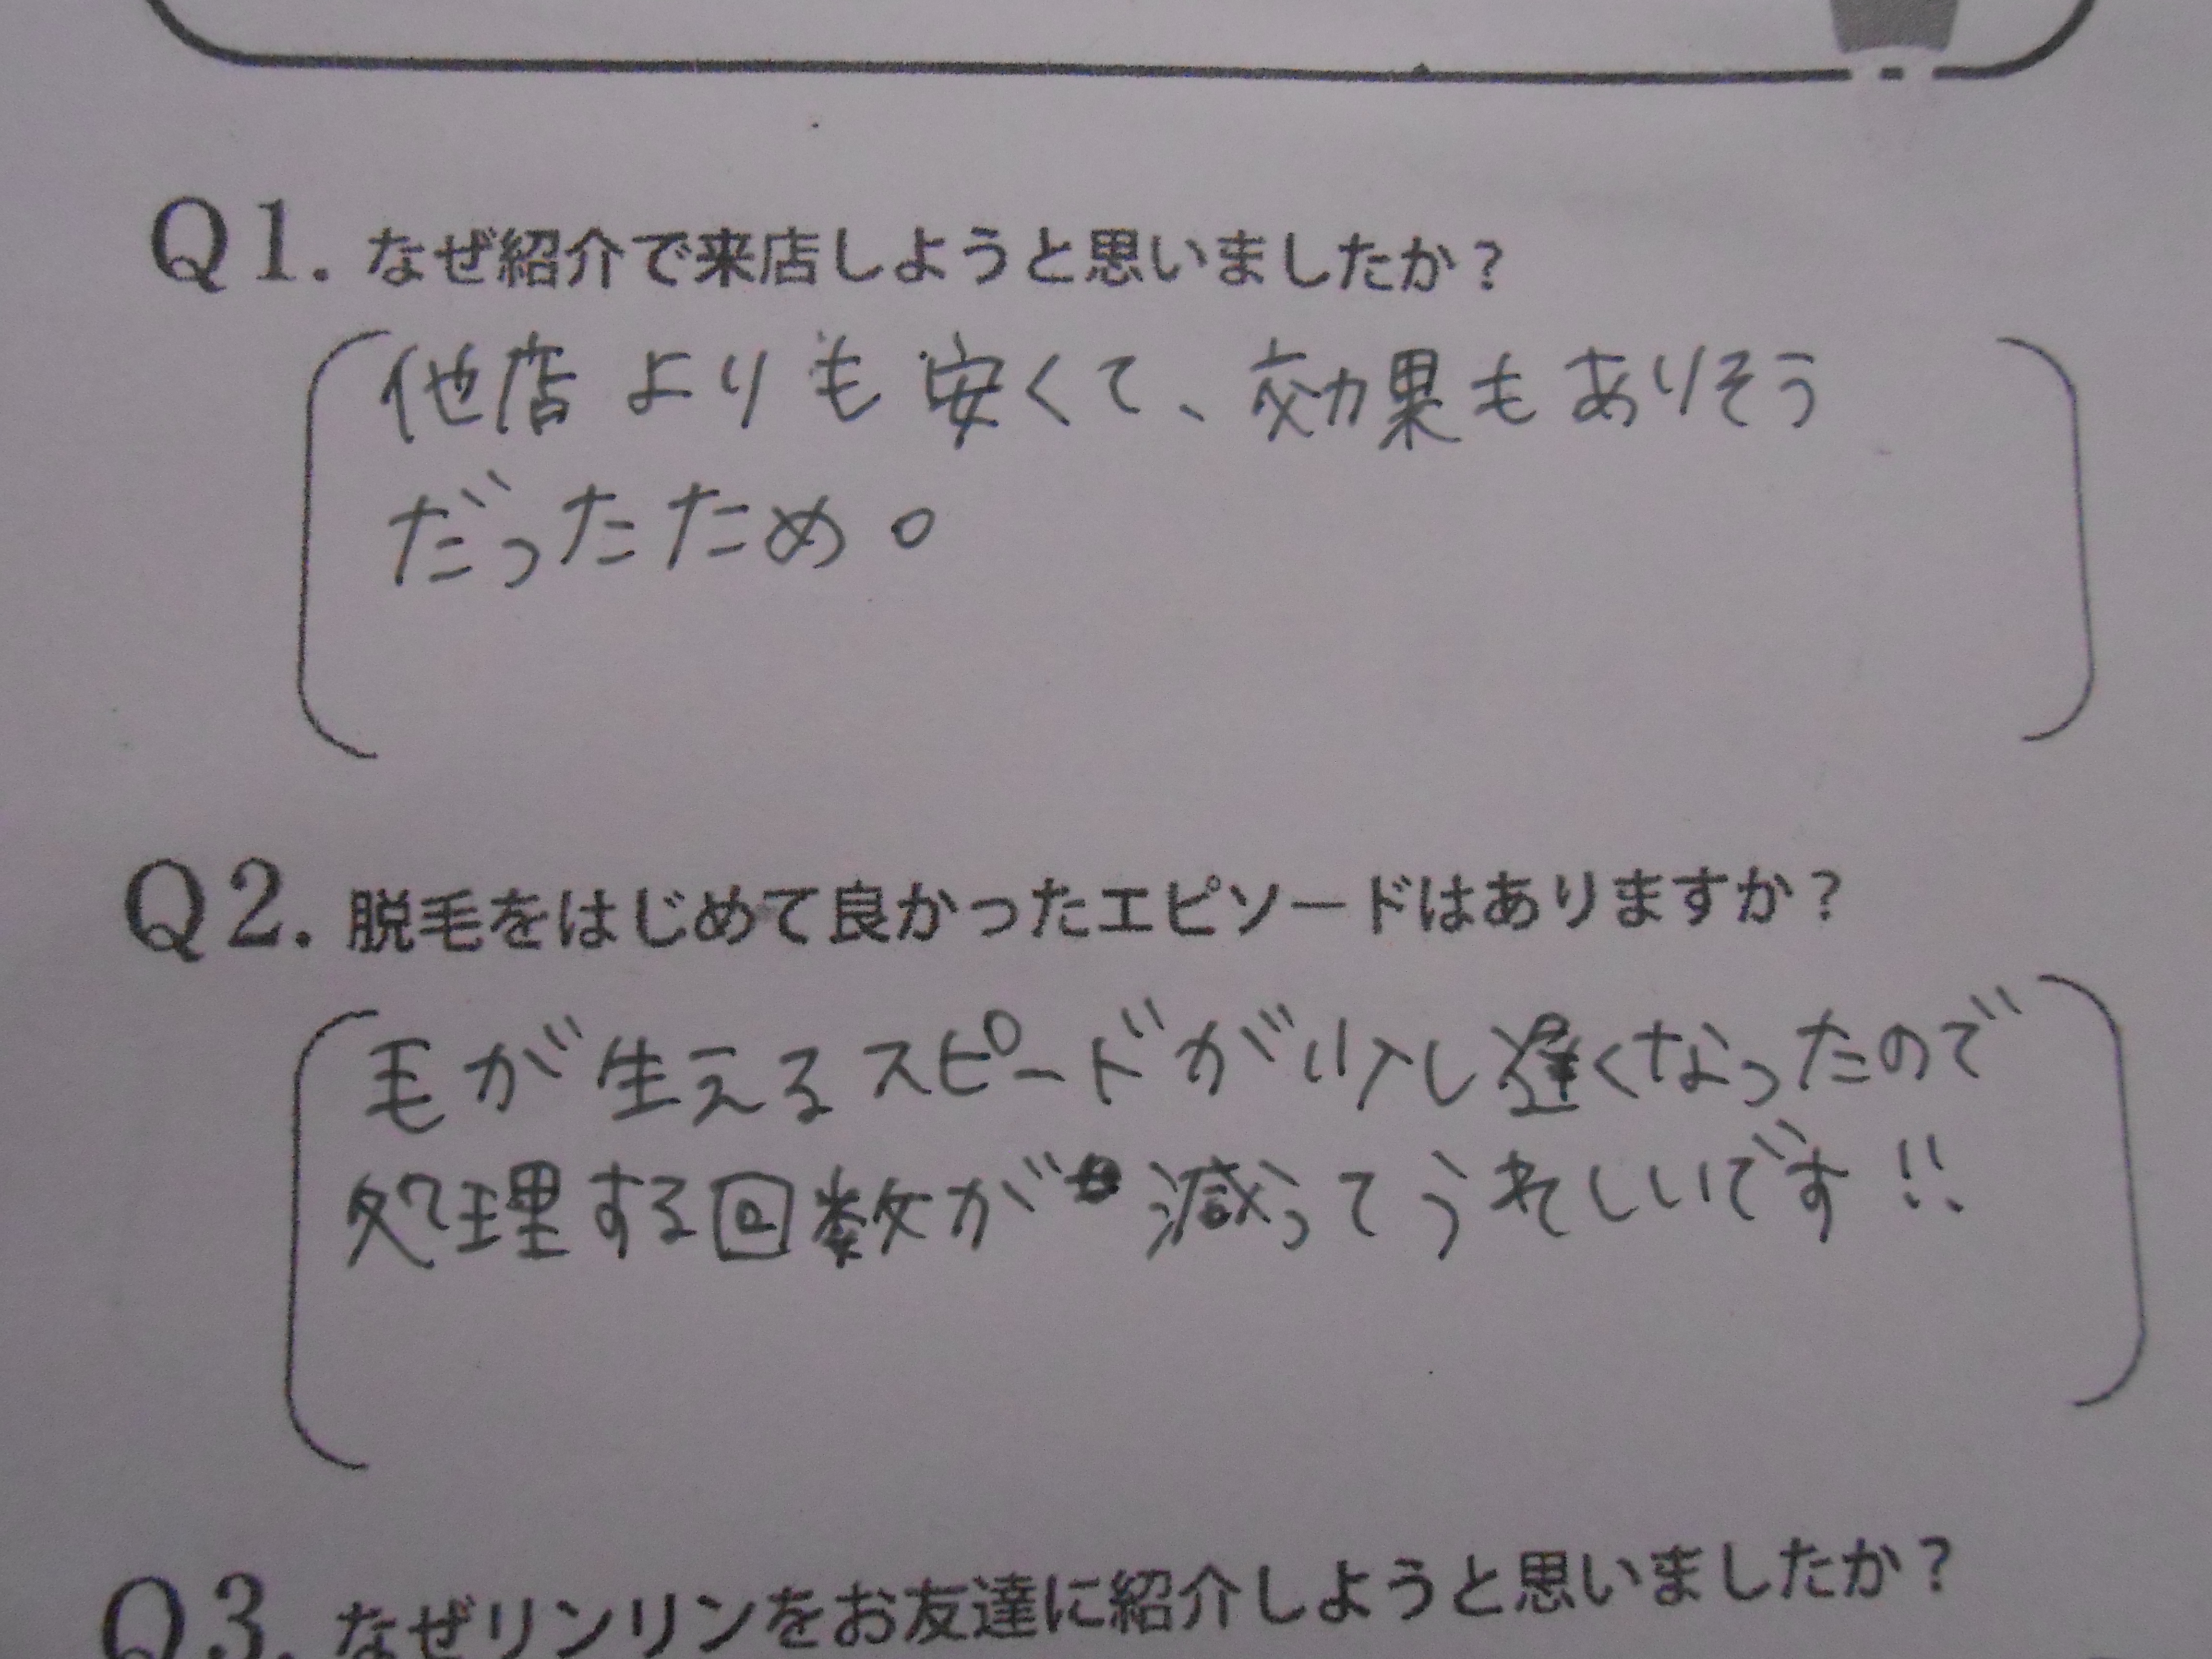 Q1. なぜ紹介で来店しようと思いましたか？
他店よりも安くて、効果もありそう
だったため。
Q2. 脱毛をはじめて良かったエピソードはありますか？
毛が生えるスピードが少し遅くなったので
処理する回数が減ってうれしいです!!
Q3. なぜリンリンをお友達に紹介しようと思いましたか？